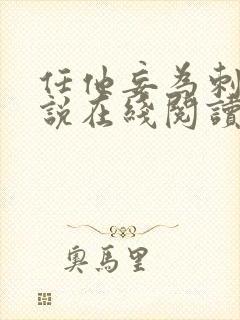 任他妄为刺
說在綫閱讀
奧馬里